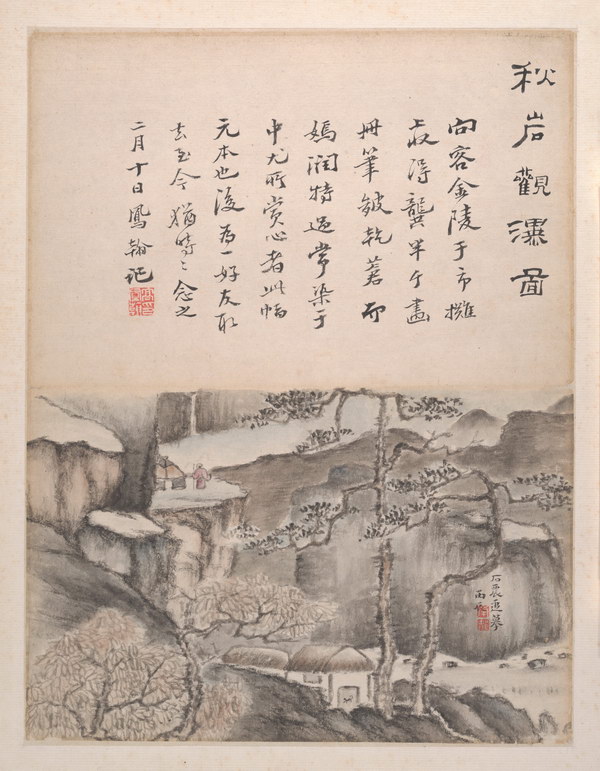 秋岩觀瀑圖
向客金陵于市攤
上得龔半千畫
冊筆皴乾著而
嫣潤特過常染于
中尤所賞心者此幅
元本也後為一好友取
去至今猶時〻念之
二月十日鳳翰記
石辰追摹